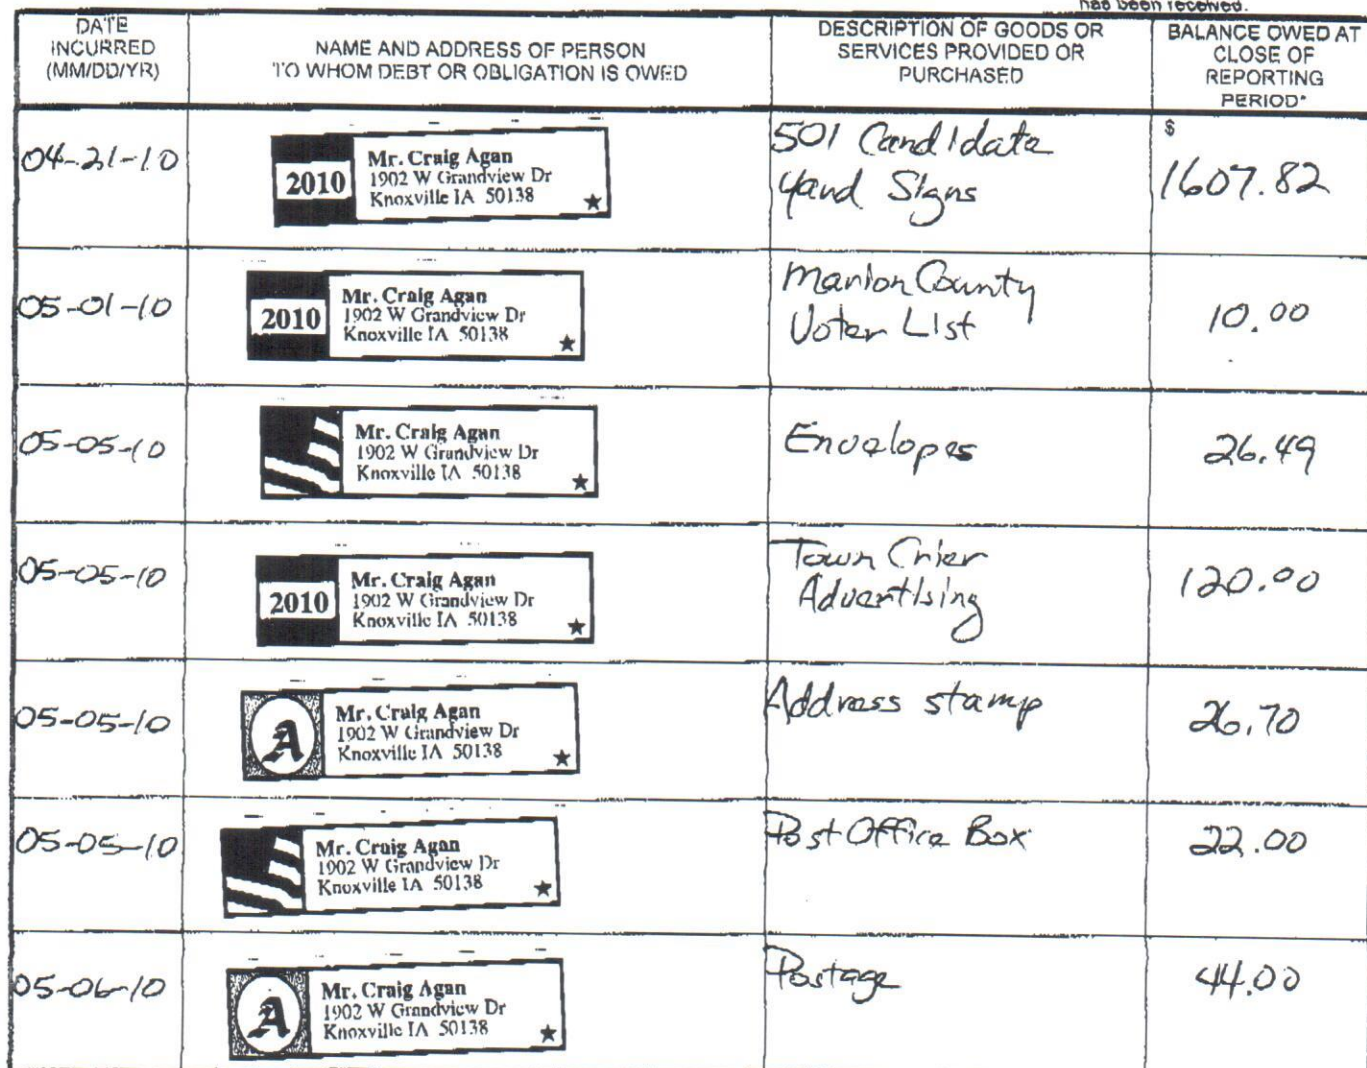 has been received.
DATE
INCURRED
(MM/DD/YR)
NAME AND ADDRESS OF PERSON
TO WHOM DEBT OR OBLIGATION IS OWED
DESCRIPTION OF GOODS OR
SERVICES PROVIDED OR
PURCHASED
BALANCE OWED AT
CLOSE OF
REPORTING
PERIOD*
04-21-10
2010
Mr. Craig Agan
1902 W Grandview Dr
Knoxville IA 50138
501 Candidate
Yard Signs
$
1607.82
05-01-10
2010
Mr. Craig Agan
1902 W Grandview Dr
Knoxville IA 50138
Marion County
Voter List
10.00
05-05-10
Mr. Craig Agan
1902 W Grandview Dr
Knoxville IA 50138
Envelopes
26.49
05-05-10
2010
Mr. Craig Agan
1902 W Grandview Dr
Knoxville IA 50138
Town Crier
Advertising
120.00
05-05-10
A
Mr. Craig Agan
1902 W Grandview Dr
Knoxville IA 50138
Address stamp
26.70
05-05-10
Mr. Craig Agan
1902 W Grandview Dr
Knoxville IA 50138
Post Office Box
22.00
05-06-10
A
Mr. Craig Agan
1902 W Grandview Dr
Knoxville IA 50138
Postage
44.00